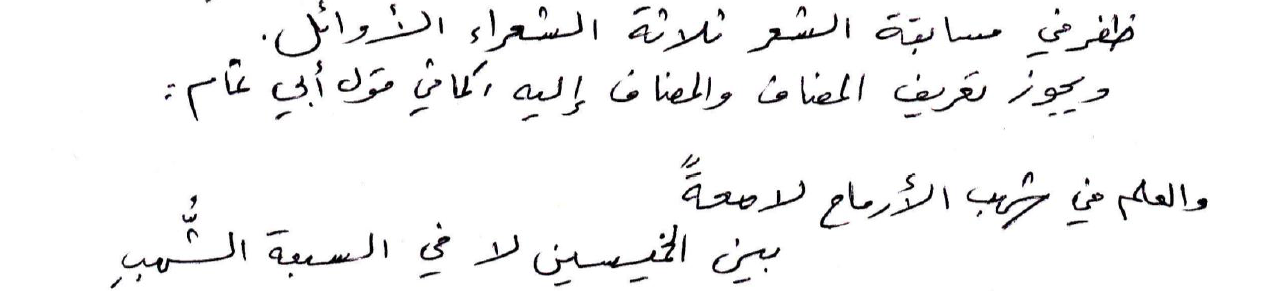 ظفر في مسابقة الشعر ثلاثة الشعراء الأوائل.
ويجوز تعريف المضاف والمضاف إليه، كما في قول أبي تمّام:
والعلم في شهب الأرماح لامعةً
بين الخميسين لا في السبعة الشُّهبِ